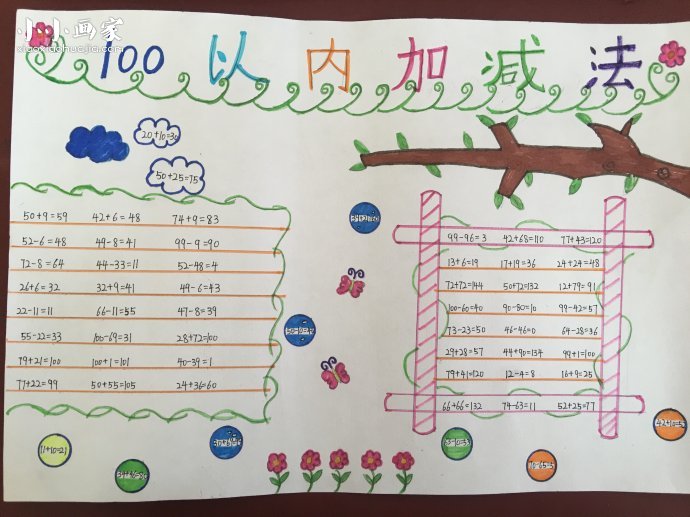 小小画家
xiaoxiaohuajia.com
100以内加减法
20+10=30
50+25=75
50+9=59 42+6=48 74+9=83
52-6=48 49-8=41 99-9=90
72-8=64 44-33=11 52-48=4
26+6=32 32+9=41 49-6=43
22-11=11 66-11=55 47-8=39
55-22=33 100-69=31 28+72=100
79+21=100 100+1=101 40-39=1
77+22=99 50+55=105 24+36=60
99-96=3 42+68=110 77+43=120
13+6=19 17+19=36 24+24=48
72+72=144 50+72=132 12+79=91
100-60=40 90-80=10 99-42=57
73-23=50 46-46=0 64-28=36
29+28=57 44+90=134 99+1=100
79+41=120 12-4=8 16+9=25
66+66=132 74-63=11 52+25=77
11+10=21